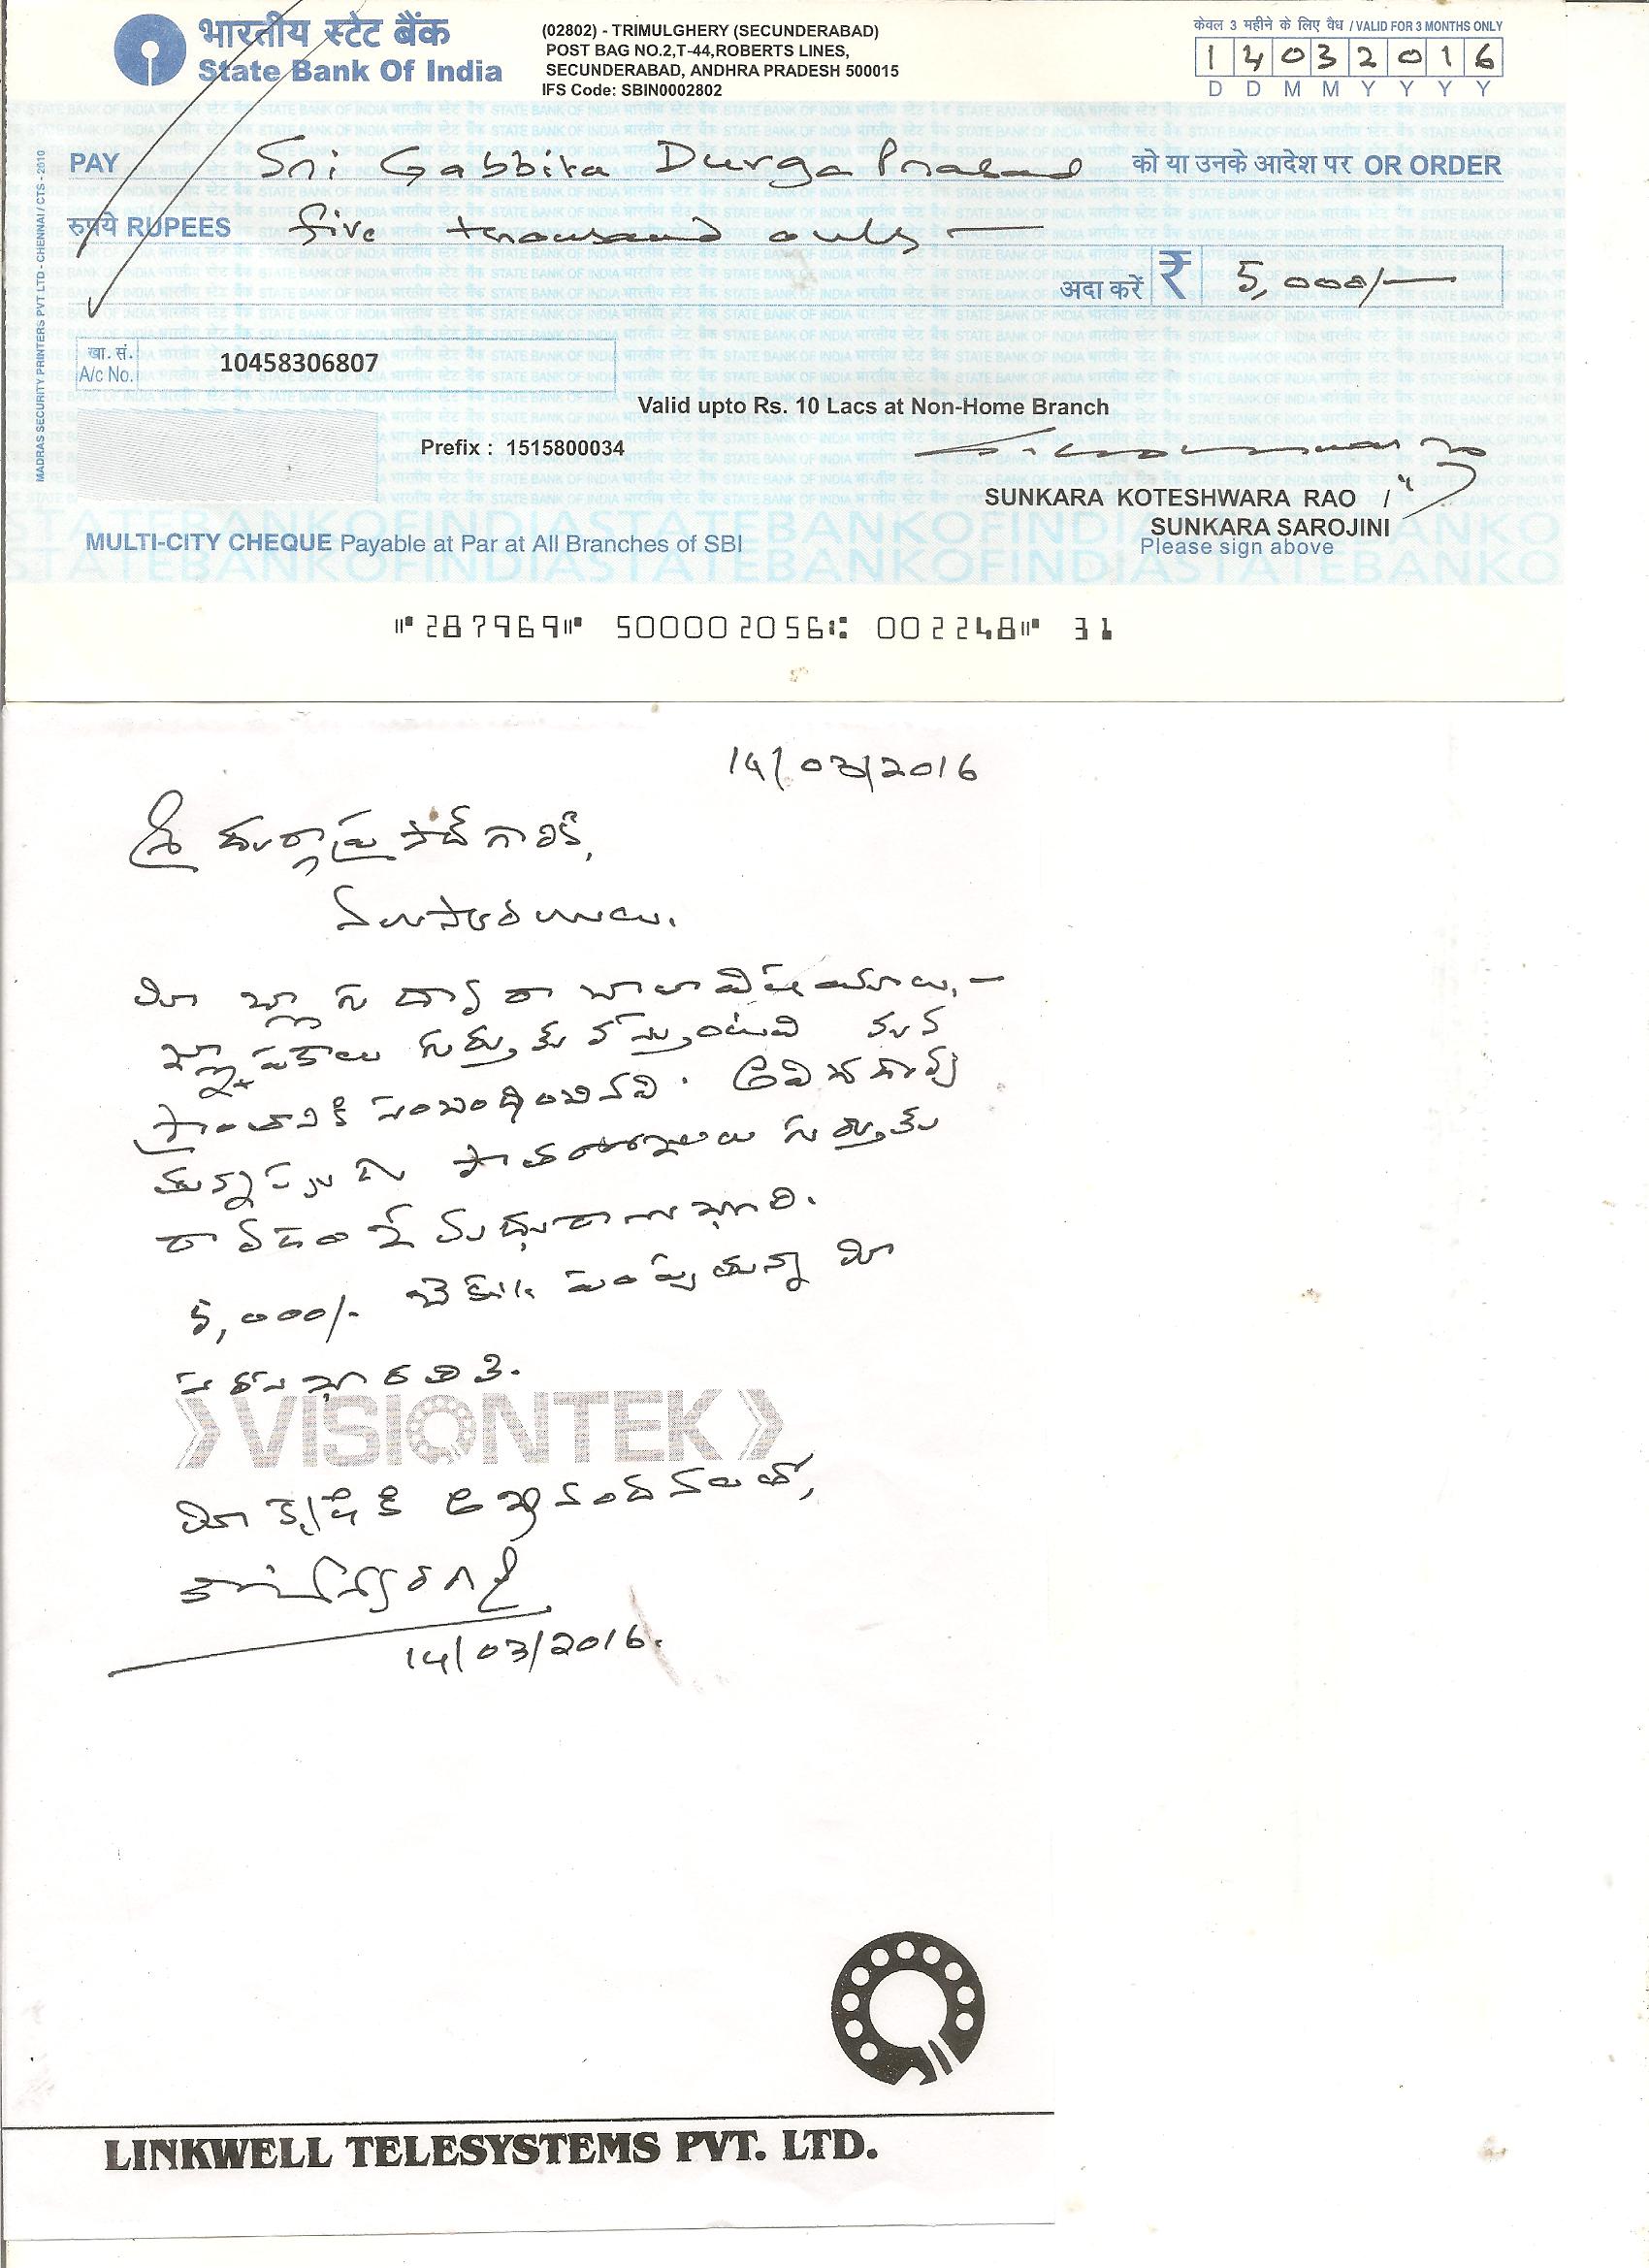 भारतीय स्टेट बैंक
State Bank Of India
(02802) - TRIMULGHERY (SECUNDERABAD)
POST BAG NO.2,T-44,ROBERTS LINES,
SECUNDERABAD, ANDHRA PRADESH 500015
IFS Code: SBIN0002802
केवल 3 महीने के लिए वैध / VALID FOR 3 MONTHS ONLY
1 4 0 3 2 0 1 6
D D M M Y Y Y Y
PAY Sri Gabbita Durga Prasad को या उनके आदेश पर OR ORDER
रुपये RUPEES five thousand only
अदा करें ₹ 5,000/-
खा. सं.
A/c No. 10458306807
MADRAS SECURITY PRINTERS PVT LTD - CHENNAI / CTS - 2010
Valid upto Rs. 10 Lacs at Non-Home Branch
Prefix : 1515800034
SUNKARA KOTESHWARA RAO /
SUNKARA SAROJINI
Please sign above
MULTI-CITY CHEQUE Payable at Par at All Branches of SBI
⑈287969⑈ 500002056⑆ 002248⑈ 31
14/03/2016
శ్రీ దుర్గాప్రసాద్ గారికి,
నమస్కారములు.
మీ బ్లాగు ద్వారా చాలా విషయాలు,-
జ్ఞాపకాలు గుర్తుకు వస్తుంటవి మన
ప్రాంతానికి సంబంధించినవి.
5,000/- చెక్కు పంపుతున్నా మీ
సరసభారతికి.
VISIONTEK
మీ కృషికి అభినందనలతో,
14/03/2016.
LINKWELL TELESYSTEMS PVT. LTD.